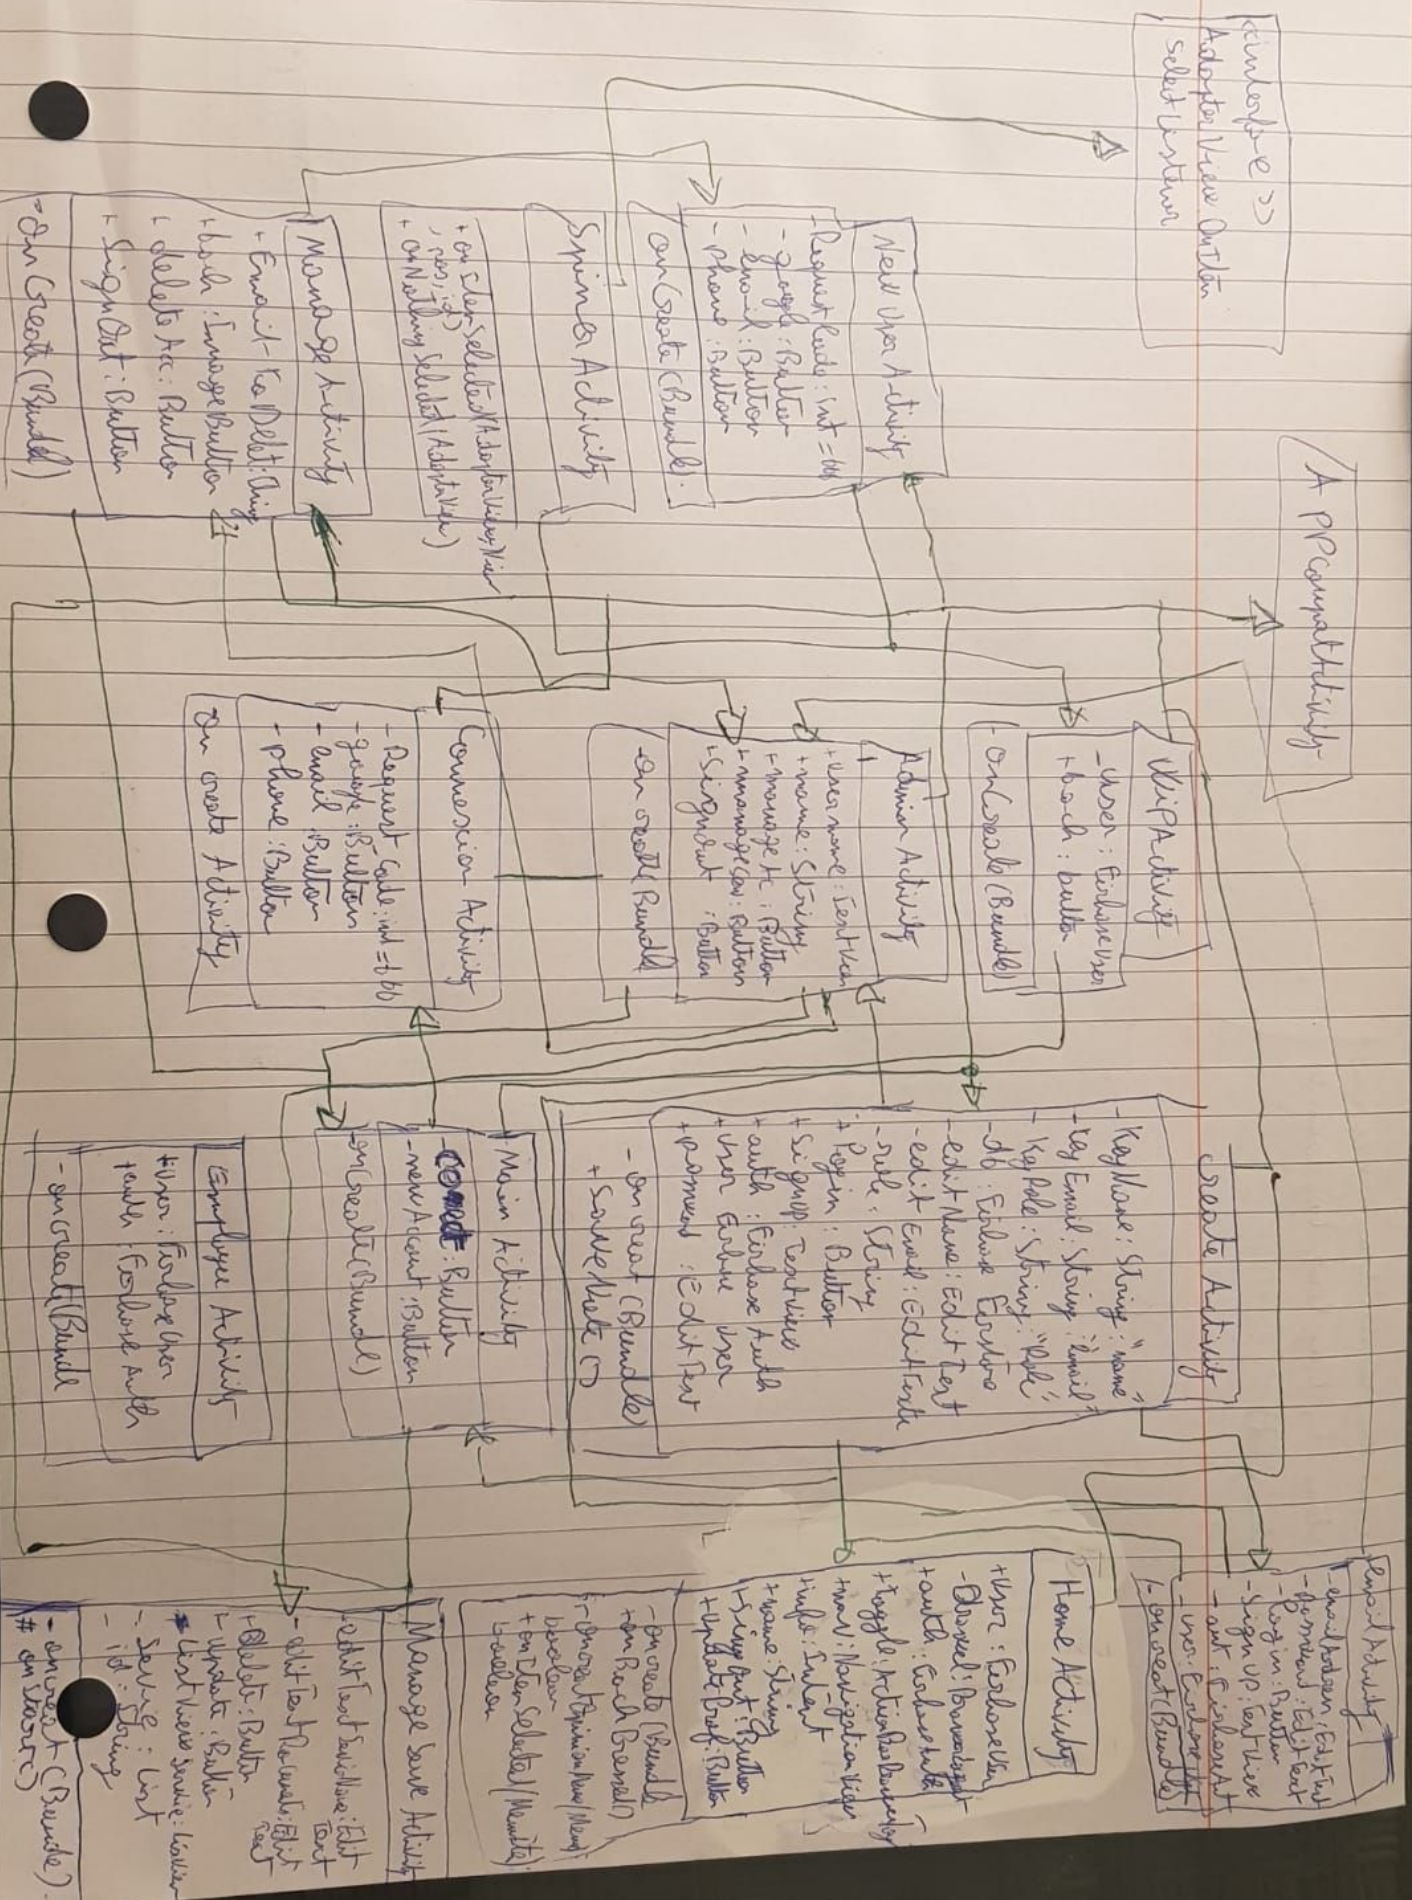 <<interface>>
AdapterView.OnItem
SelectListener
APPCompatActivity
New User Activity
-Request Code: int = 666
- google: Button
- email: Button
- phone: Button
onCreate(Bundle).
Spiner Activity
+ onItemSelected(AdapterView, View
, pos, id)
+ onNothingSelected(AdapterView)
ManageActivity
+ Email-toDelet: String
+ bach: ImageButton
+ deleteAcc: Button
+ SignOut: Button
- OnCreate(Bundel)
-User: FirbaseUser
+ bach: button
- onCreate(Bundle)
Admin Activity
+username: TextView
+name: String
+manageAc: Button
+manageSav: Button
+Signout: Button
- on create(Bundle)
Connexion Activity
- Request_Code: int = 666
- google: Button
- email: Button
- phone: Button
On create Activity
Create Activity
- KeyName: String: "name"
- KeyEmail: String: "Email"
- KeyRole: String: "Role";
- db: Firbase Firstore
- editName: Edit Text
- edit Email: Edit Texte
- role: String
+ Login: Button
+ SignUp: TextView
+ auth: Firbase Auth
+ User Firbase User
+ passwrd: Edit Text
- on creat (Bundle)
+ Save Note ()
Main Activity
- Connect: Button
- new Account: Button
- onCreate(Bundel)
Employee Activity
+User: FirbaseUser
+auth: Firbase Auth
- oncreat(Bundle
Email Activity
- Login: Button
- SignUp: TextView
- user: Firbase User
- on creat(Bundle)
Home Activity
+User: FirbaseUser
+auth: FirbaseAuth
+nav: NavigationView
+info: Intent
+name: String
+SingOut: Button
+UpdateProf: Button
- oncreate (Bundle
+ onBachPressed()
boolean
+ onItemSelected(MenuIte):
boolean
Manage Save Activity
- editText ServiName: Edit
Text
Text
+ Delete: Button
+ Update: Button
- Service: List
- id: String
- oncreat(Bundle).
# onStart()